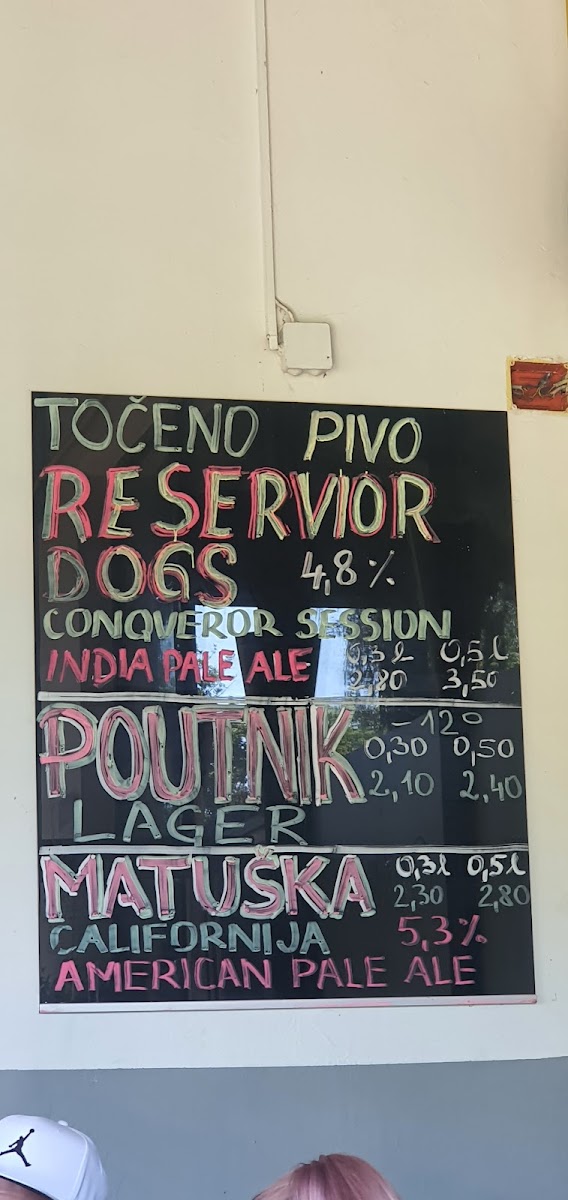 TOČENO PIVO
RESERVIOR
DOGS 4,8%
CONQVEROR SESSION
INDIA PALE ALE 0,3l 0,5l
2,80 3,50
POUTNIK -12°
0,30 0,50
2,10 2,40
LAGER
MATUŠKA 0,3l 0,5l
2,30 2,80
CALIFORNIJA 5,3%
AMERICAN PALE ALE